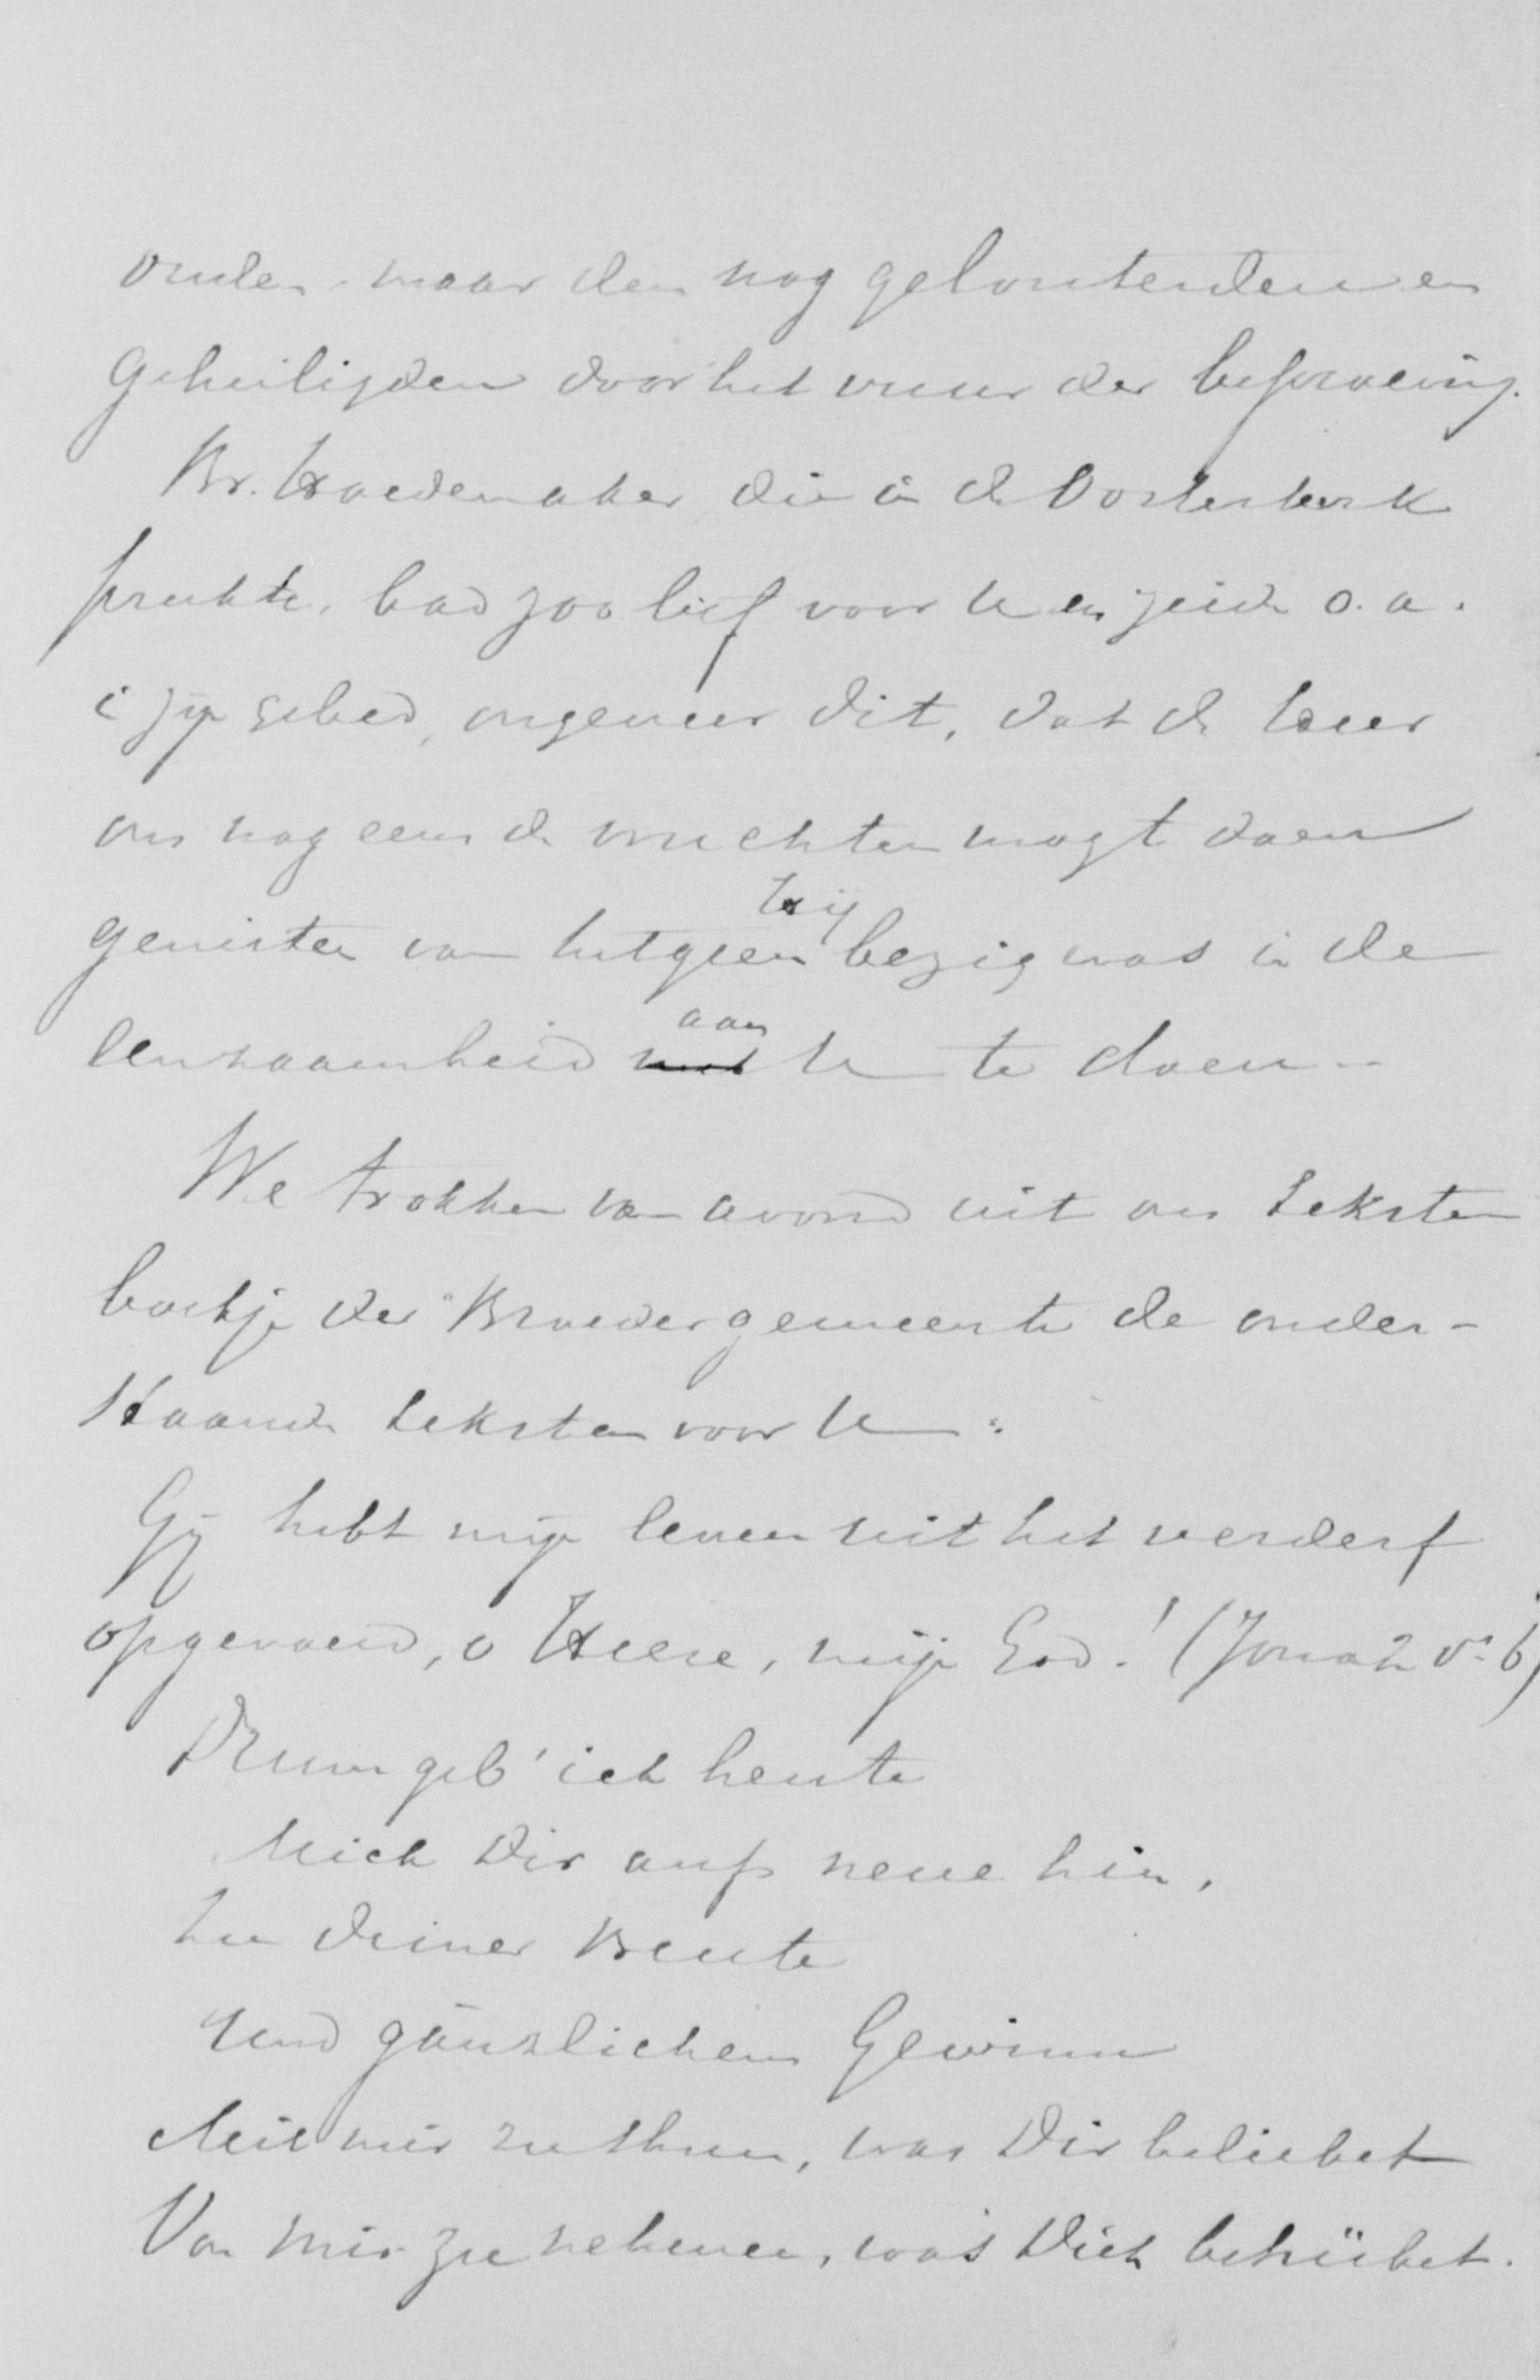 ouden, maar den nog gelouterden en
geheiligden door het vuur der beproeving.
Br. Hoedemaker die in de Oosterkerk
preekte, bad zoo lief voor U en zeide o.a.
i zijn gebed, ongeveer dit, dat de Heer
ons nog eens de vruchten mogt doen
genieten van hetgeen Hij bezig was in de
eenzaamheid aan U te doen.
We trokken van avond uit ons teksten
boekje der Broedergemeente de onder-
staande teksten voor U:
Gij hebt mijn leven uit het verderf
opgevoerd, o Heere, mijn God! (Jona 2 vs 6)
Drum geb' ich heute
Mich Dir aufs neue hin,
Zu Deiner Beute
Und gänzlichem Gewinn
Mit mir zu thun, was Dir beliebet
Von mir zu nehmen, was Dich betrübet.